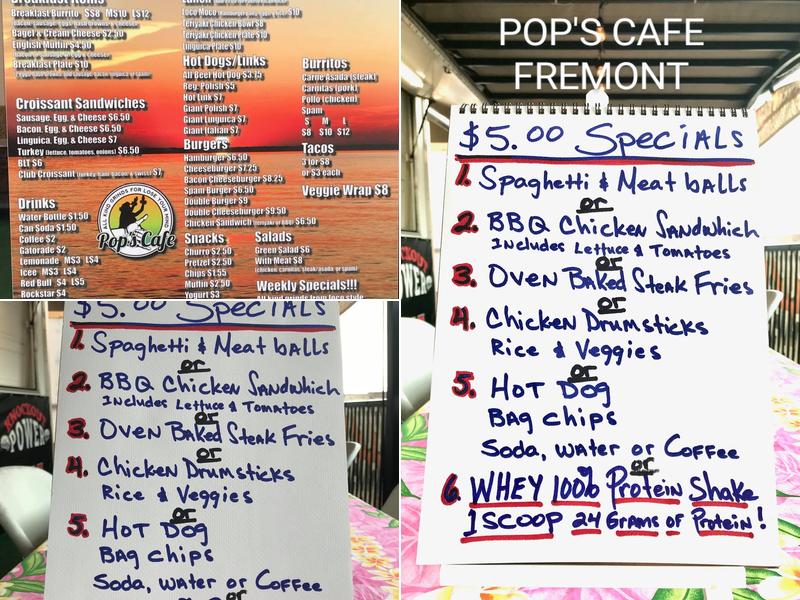 Breakfast Items
Breakfast Burrito S$8 M$10 L$12
Bagel & Cream Cheese $2.50
English Muffin $4.50
Breakfast Plate $10
Croissant Sandwiches
Sausage, Egg, & Cheese $6.50
Bacon, Egg, & Cheese $6.50
Linguica, Egg, & Cheese $7
Turkey (lettuce, tomatoes, onions) $6.50
BLT $6
Club Croissant (turkey, ham, bacon, & swiss) $7
Drinks
Water Bottle $1.50
Can Soda $1.50
Coffee $2
Gatorade $2
Lemonade M$3 L$4
Icee M$3 L$4
Red Bull $4 L$5
Rockstar $4
ALL KIND GRINDS FOR LOSE YOUR MIND
Pop's Cafe
Loco Moco $10
Teriyaki Chicken Bowl $8
Teriyaki Chicken Plate $10
Linguica Plate $10
Hot Dogs/Links
All Beef Hot Dog $3.75
Reg. Polish $5
Hot Link $7
Giant Polish $7
Giant Linguica $7
Giant Italian $7
Burgers
Hamburger $6.50
Cheeseburger $7.25
Bacon Cheeseburger $8.25
Spam Burger $6.50
Double Burger $9
Double Cheeseburger $9.50
Chicken Sandwich (teriyaki or BBQ) $6.50
Snacks
Churro $2.50
Pretzel $2.50
Chips $1.55
Muffin $2.50
Yogurt $3
Burritos
Carne Asada (steak)
Carnitas (pork)
Pollo (chicken)
Spam
S M L
$8 $10 $12
Tacos
3 for $8
or $3 each
Veggie Wrap $8
Salads
Green Salad $6
With Meat $8
(chicken, carnitas, steak/asada, or spam)
Weekly Specials!!!
All kind grinds from loco style
POP'S CAFE
FREMONT
$5.00 Specials
1. Spaghetti & Meat balls
or
2. BBQ Chicken Sandwhich
Includes Lettuce & Tomatoes
or
3. Oven Baked Steak Fries
or
4. Chicken Drumsticks
Rice & Veggies
or
5. Hot Dog
Bag chips
Soda, water or Coffee
or
6. WHEY 100% Protein Shake
1 SCOOP 24 Grams of Protein!
$5.00 Specials
1. Spaghetti & Meat balls
or
2. BBQ Chicken Sandwhich
Includes Lettuce & Tomatoes
or
3. Oven Baked Steak Fries
or
4. Chicken Drumsticks
Rice & Veggies
or
5. Hot Dog
Bag chips
Soda, water or Coffee
or
KNOCKOUT
POWER